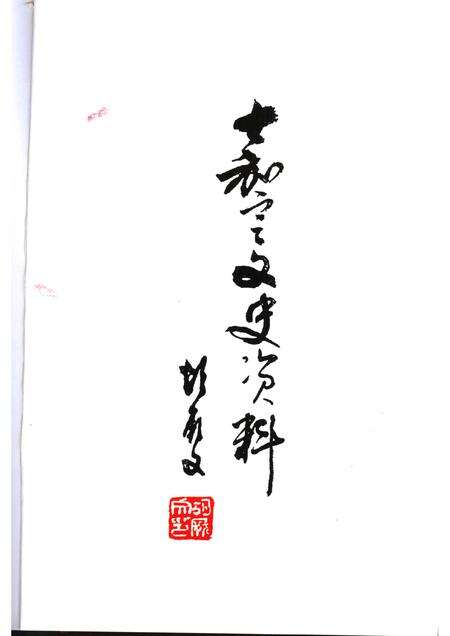 嘉定文史资料
胡厥文
胡厥文印